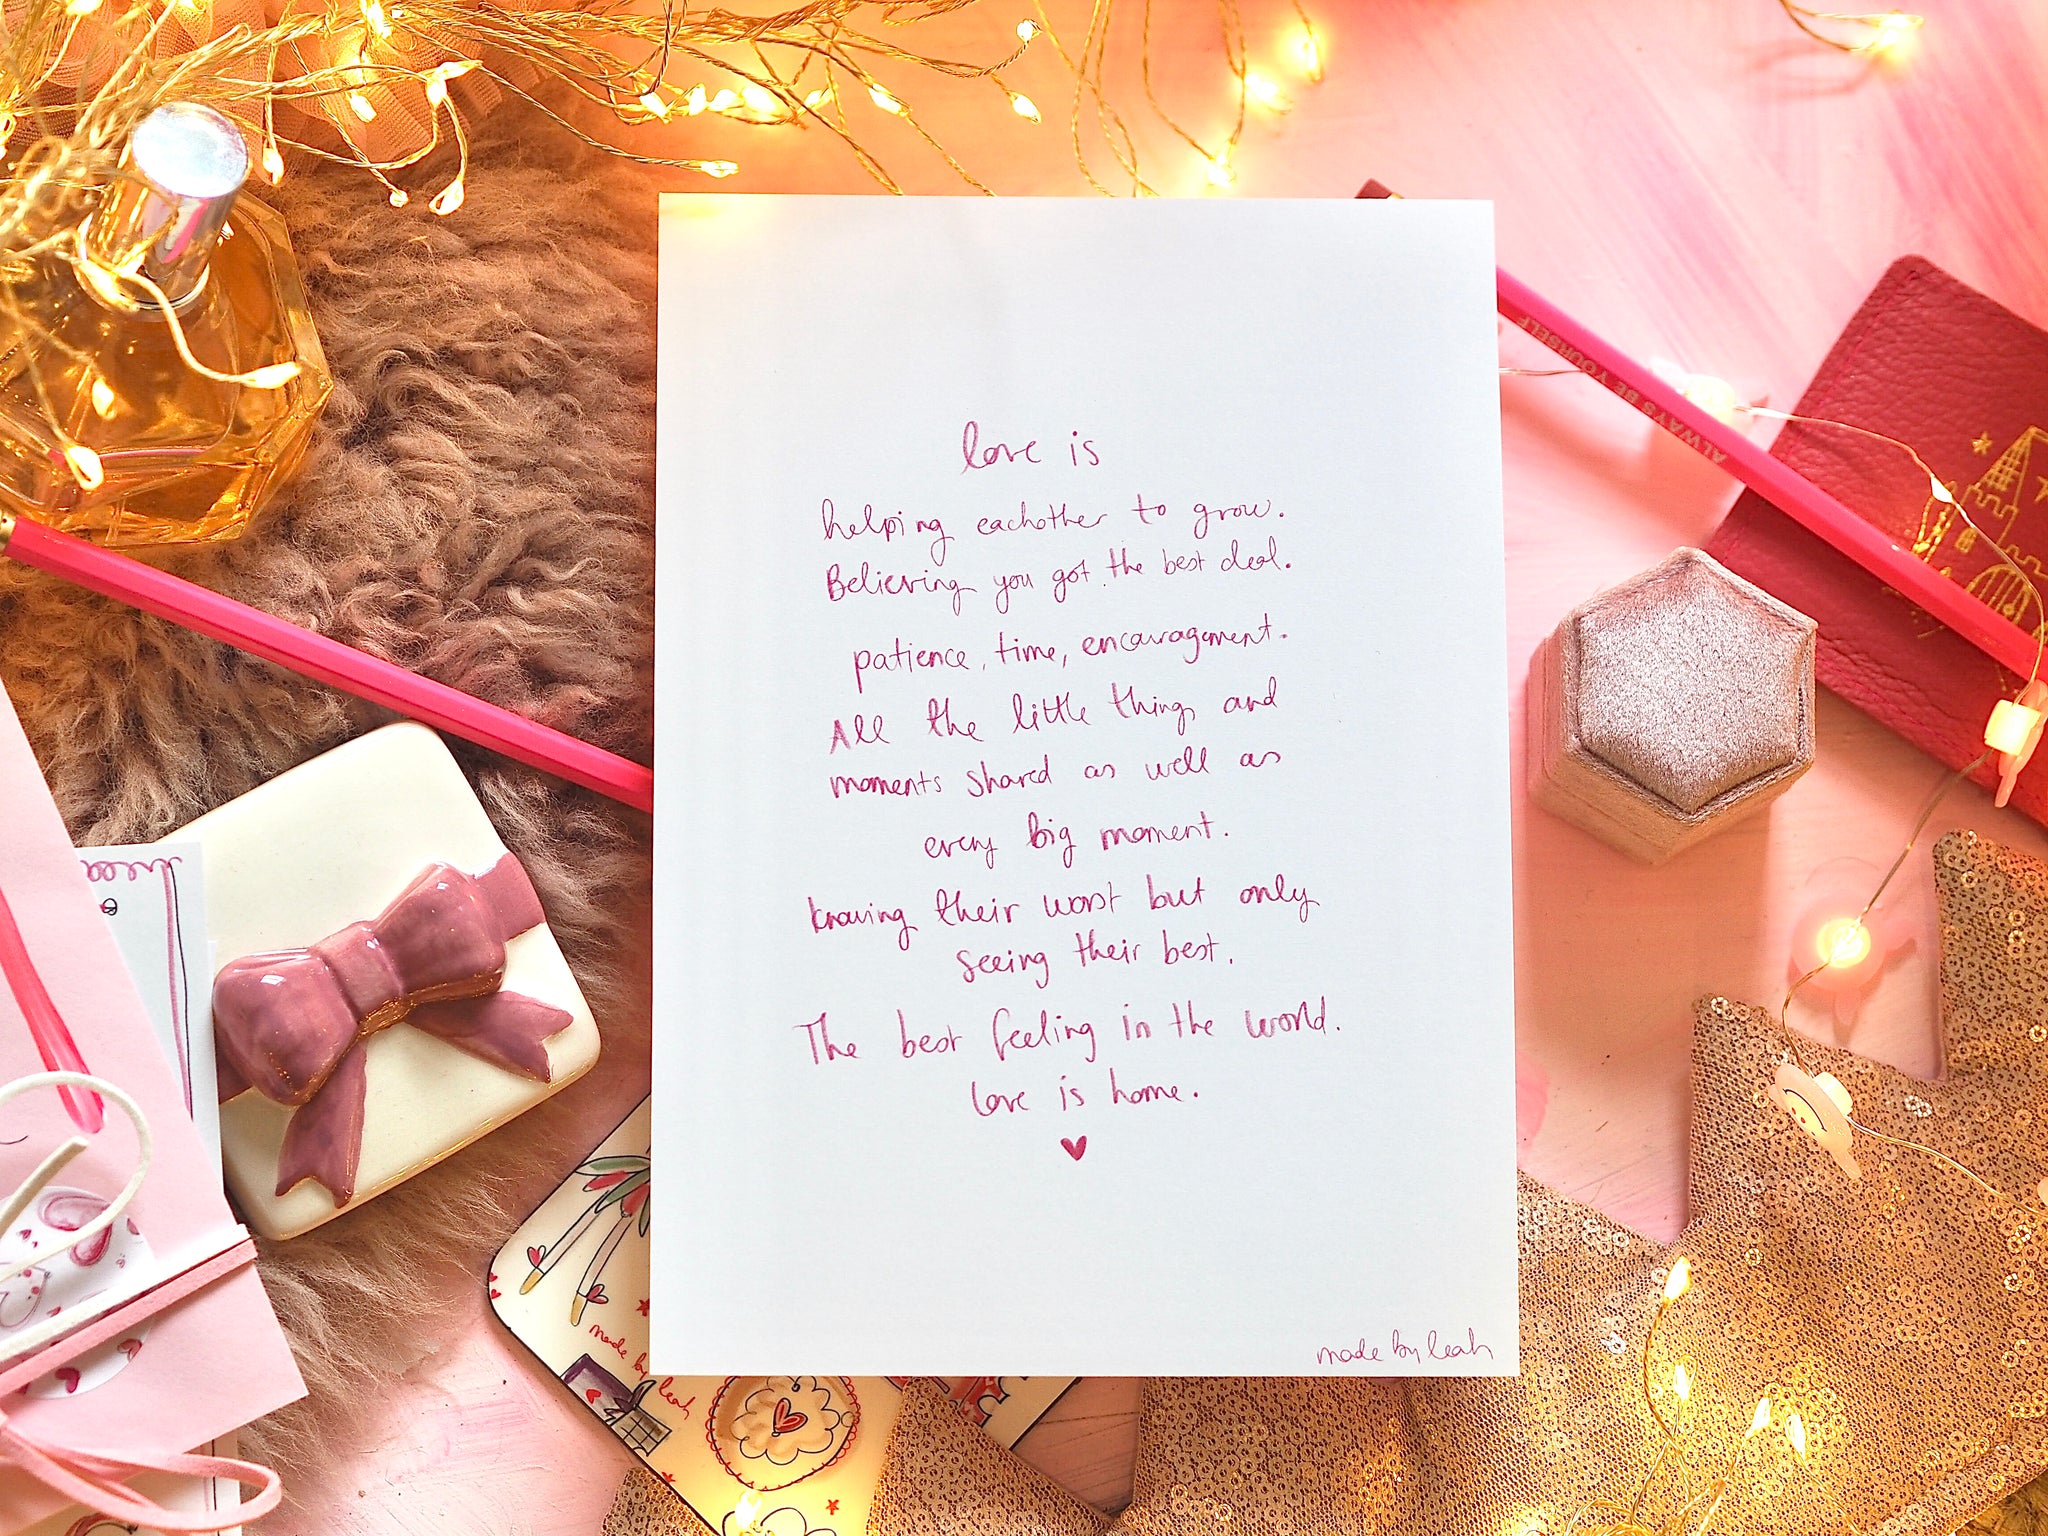 love is
helping eachother to grow.
Believing you got the best deal.
patience, time, encouragement.
All the little things and
moments shared as well as
every big moment.
knowing their worst but only
seeing their best.
The best feeling in the world.
love is home.
made by leah
ALWAYS BE YOURSELF
made by leah